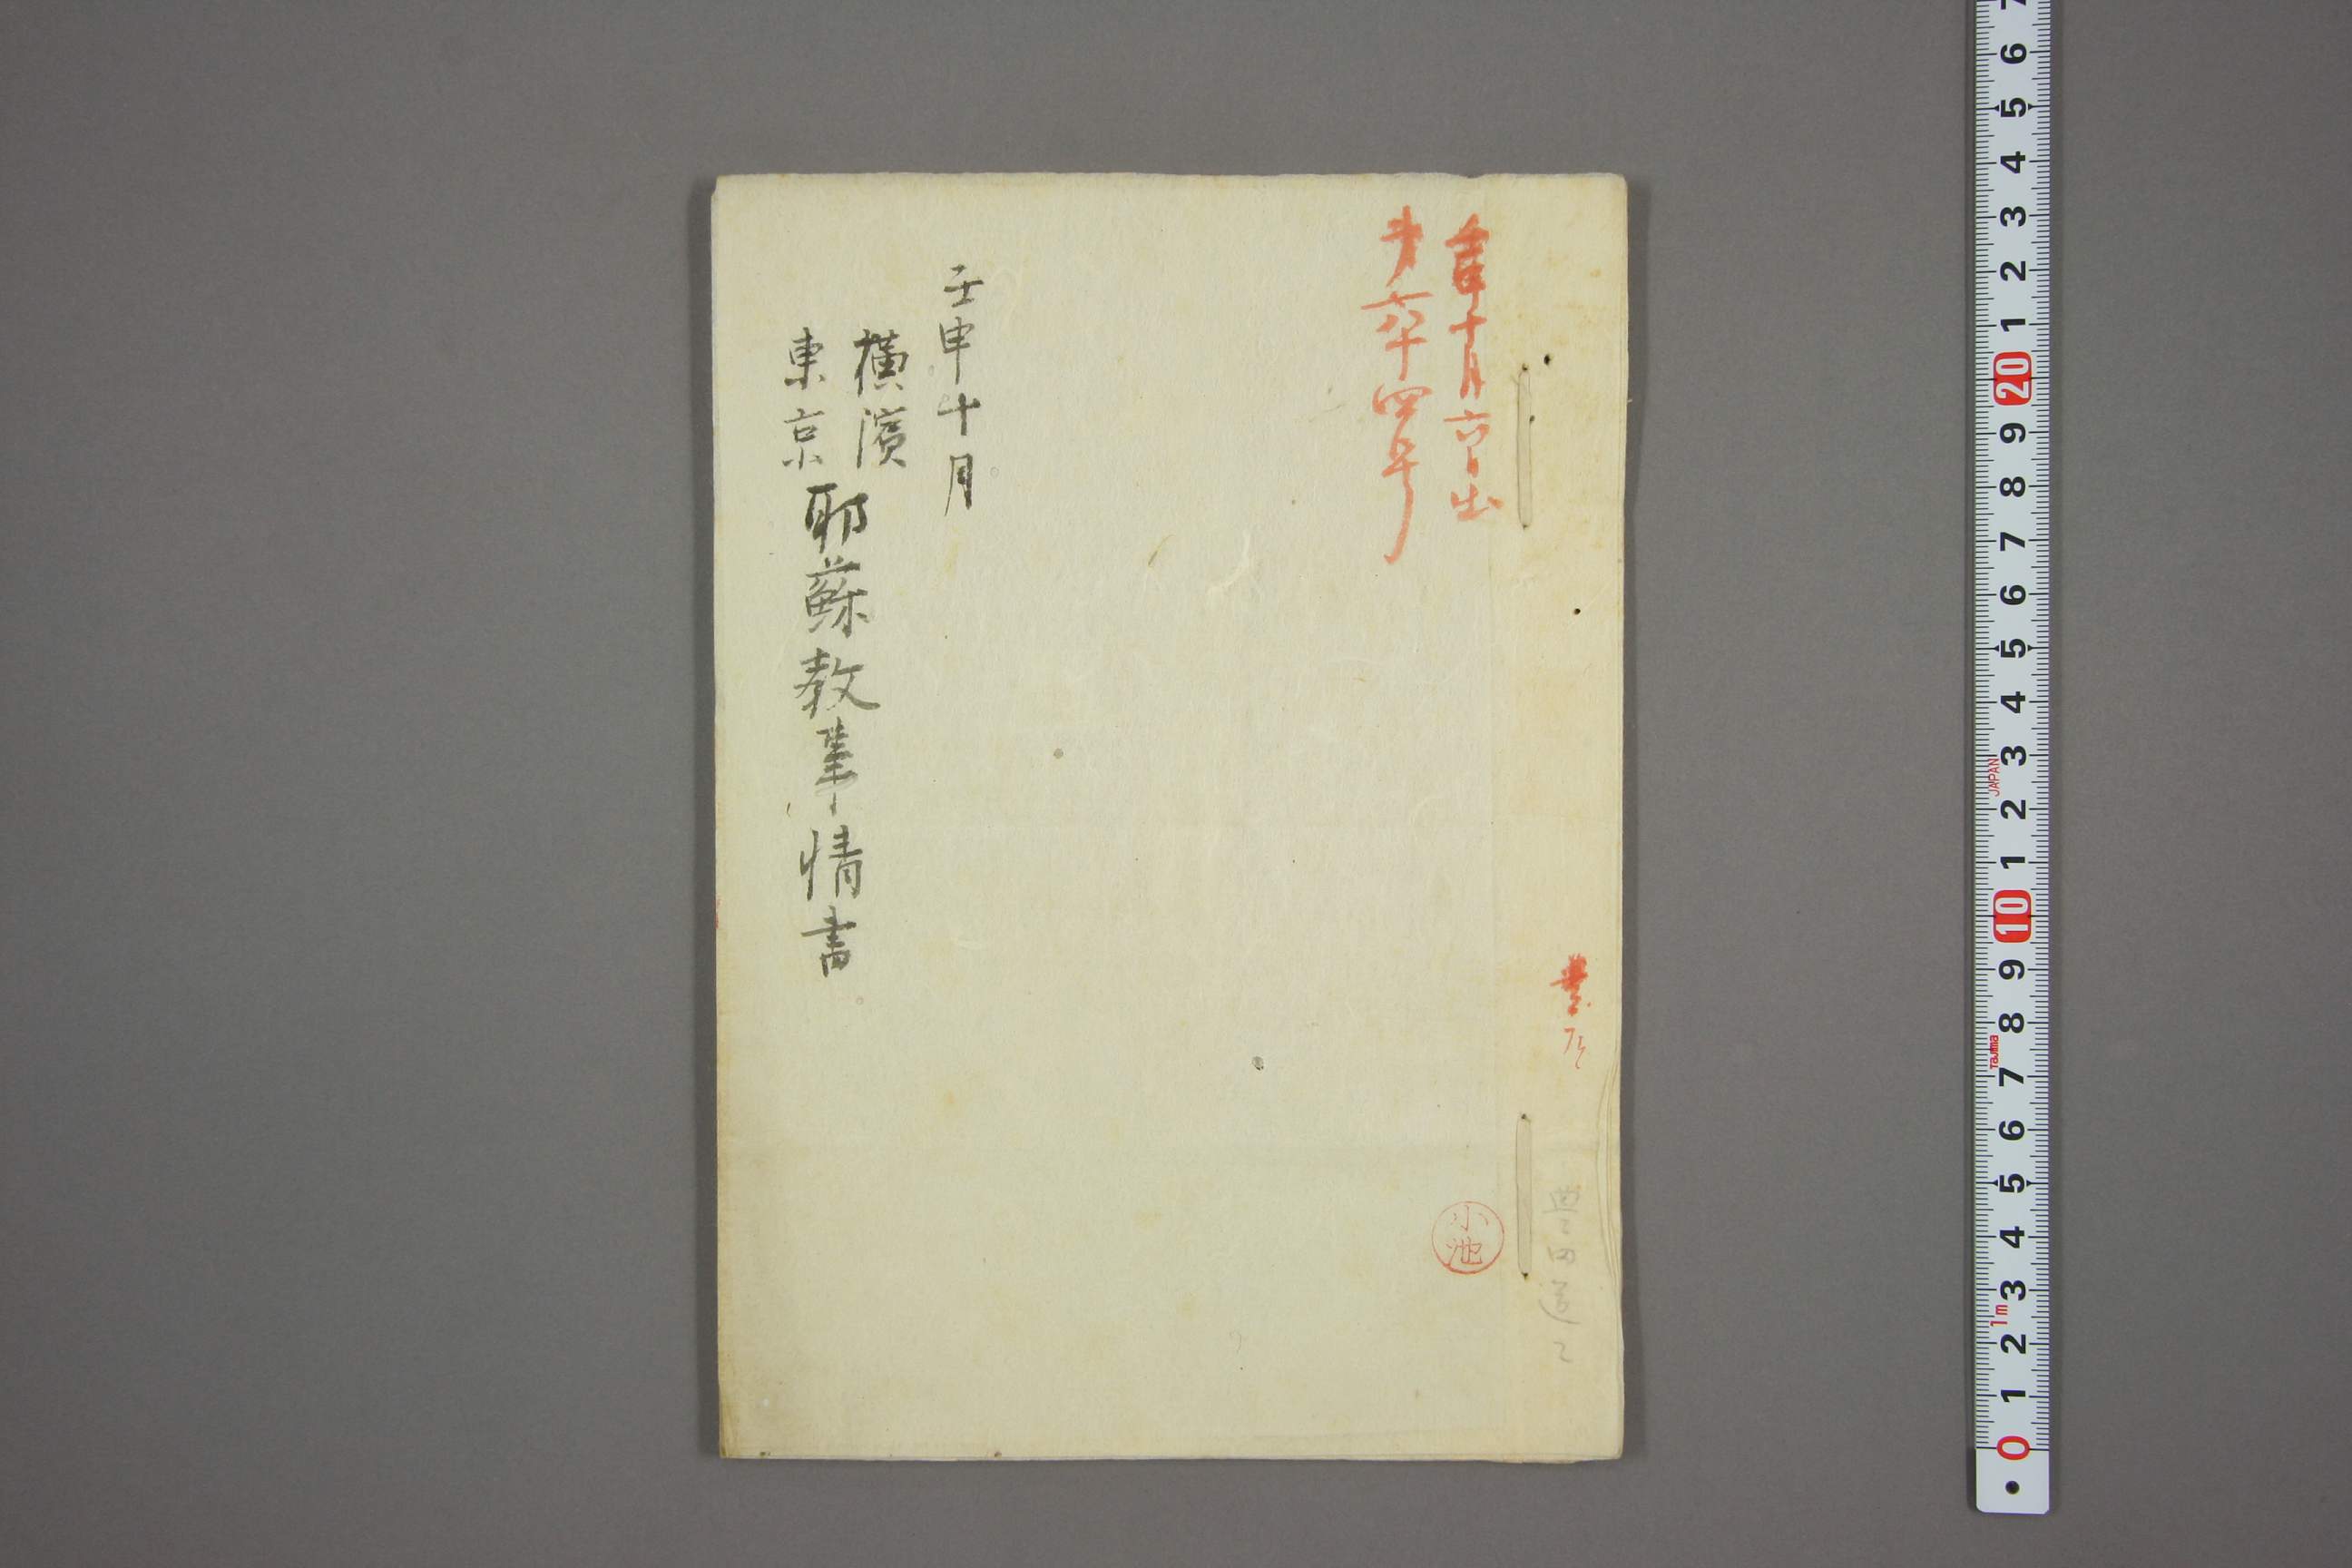 壬申十月六日出
第六十四号
壬申十月
横濱
東京
耶蘇教事情書
小池
7 6 5 4 3 2 1 20 9 8 7 6 5 4 3 2 1 10 9 8 7 6 5 4 3 2 1 0
JAPAN
Tajima
1m